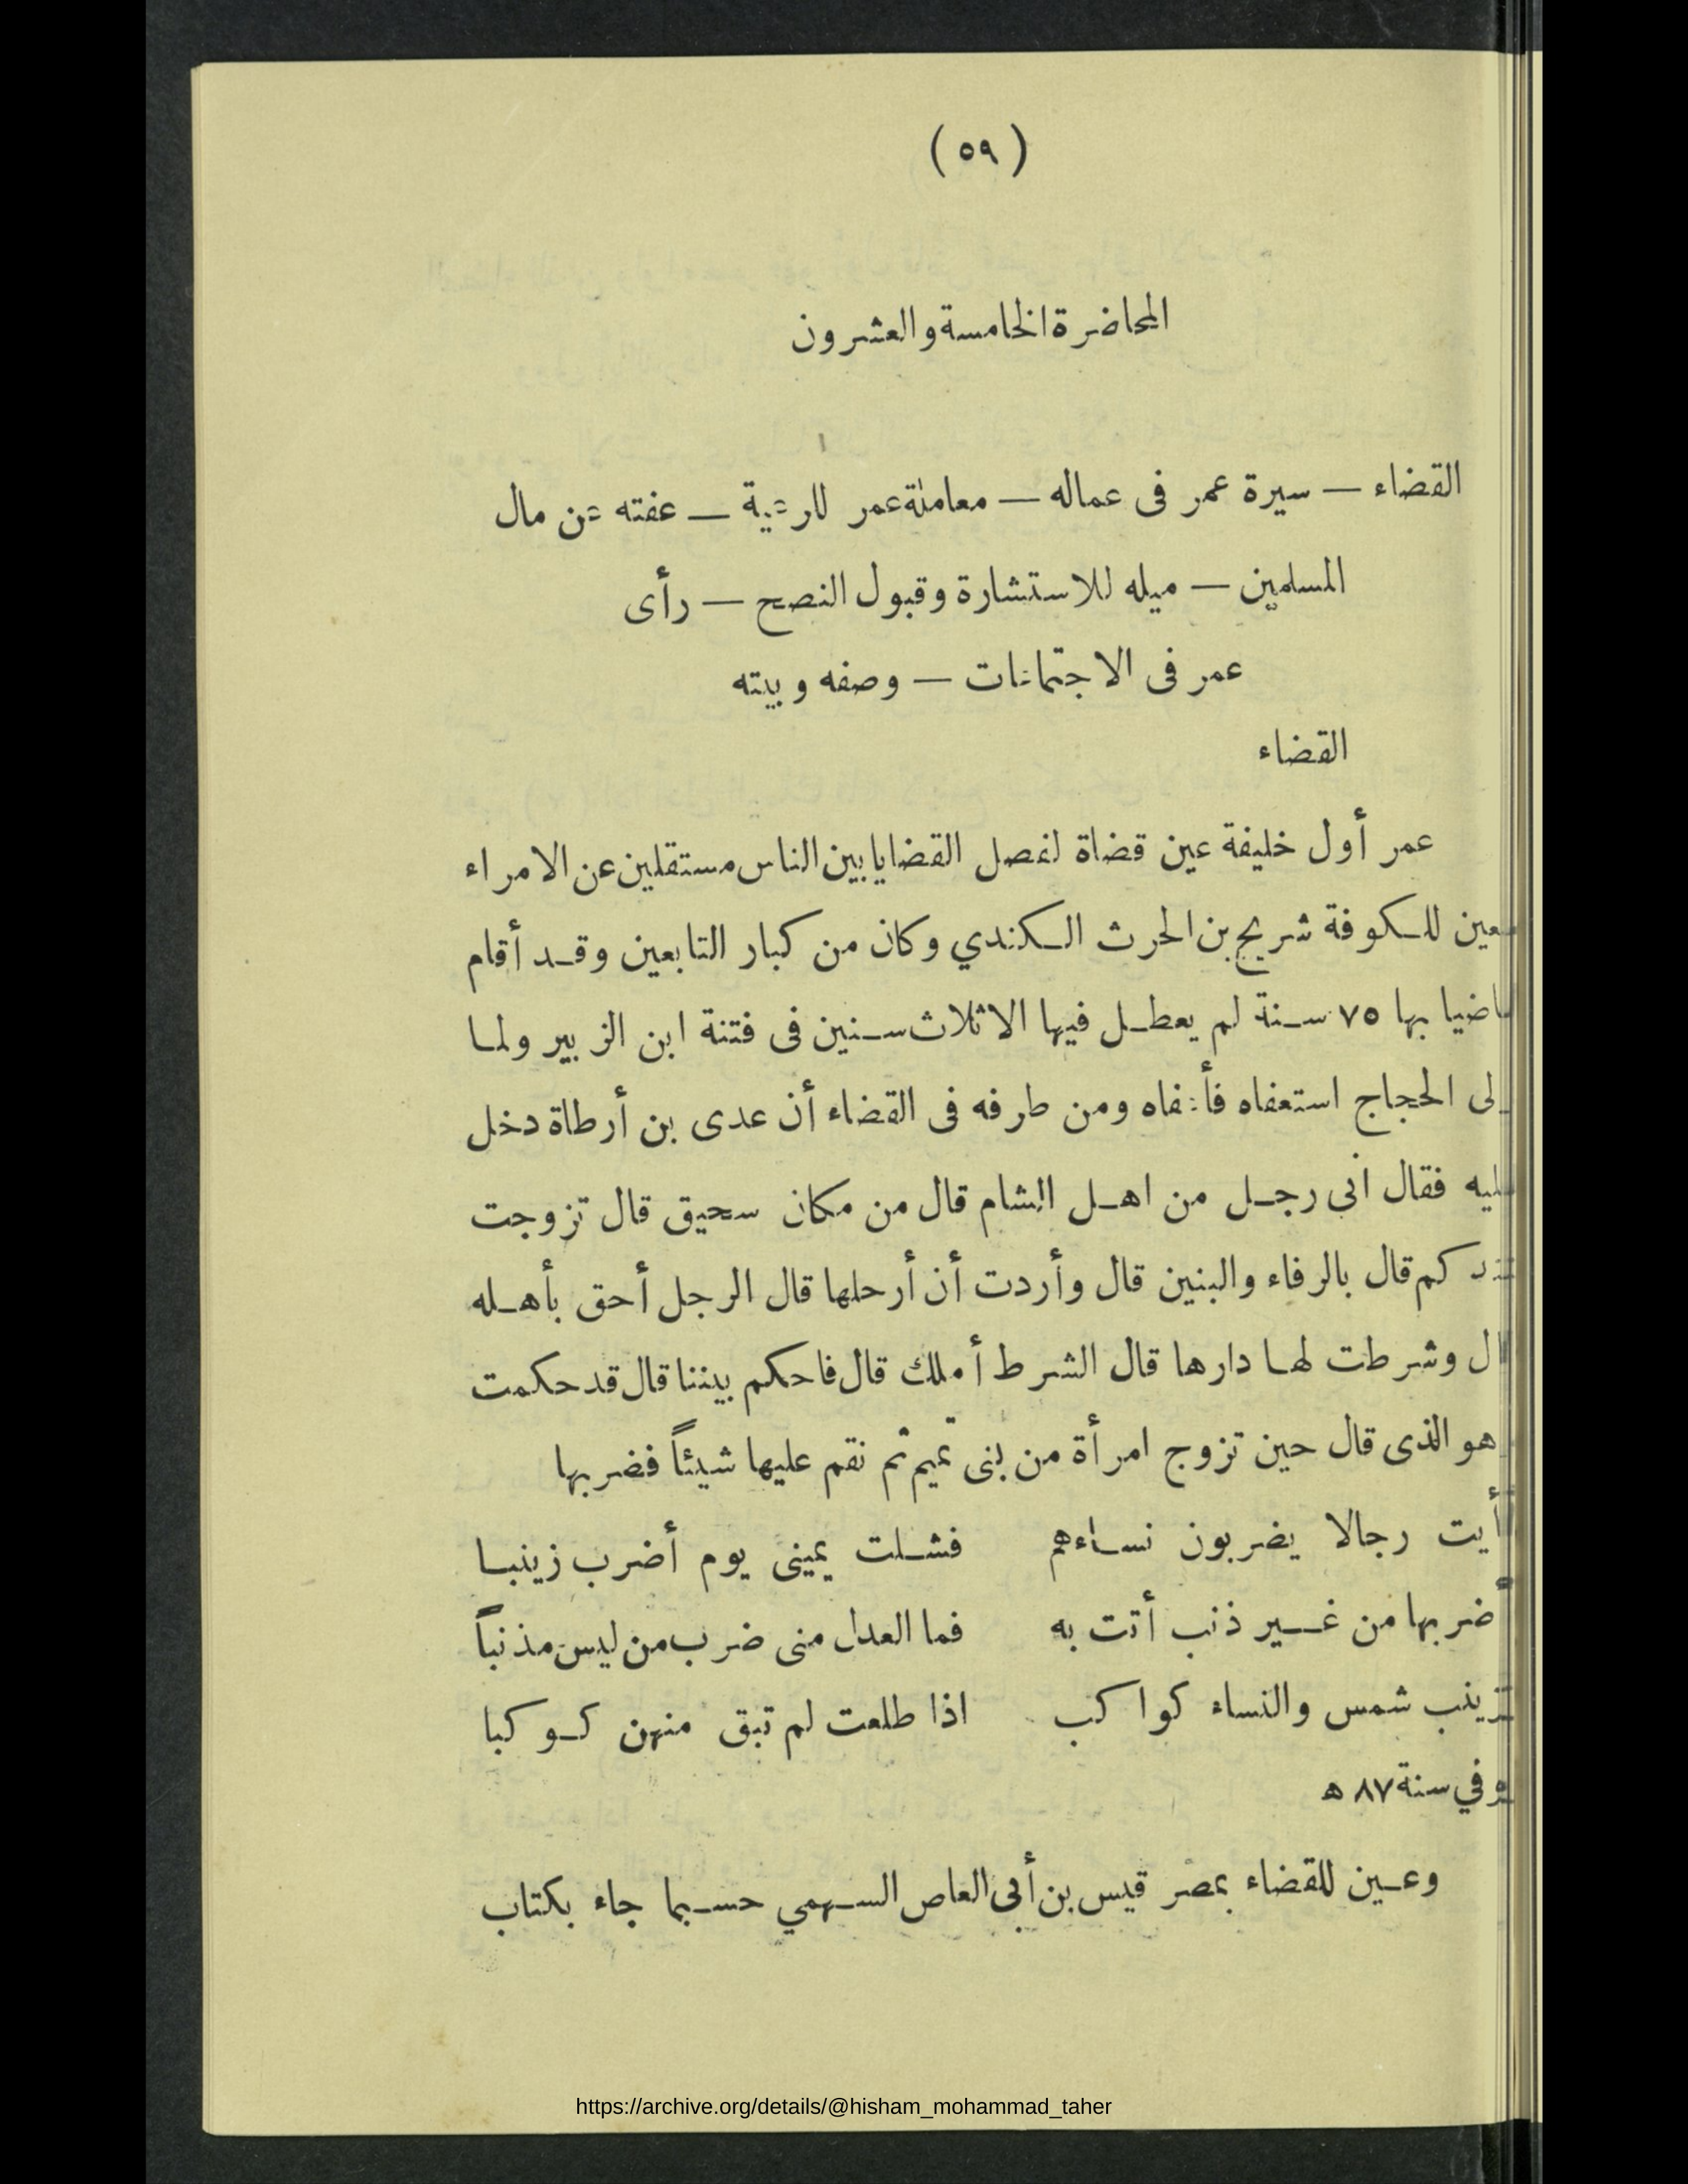 (٥٩)
المحاضرة الخامسة والعشرون
القضاء — سيرة عمر فى عماله — معاملة عمر للرعية — عفته عن مال
المسلمين — ميله للاستشارة وقبول النصح — رأى
عمر فى الاجتماعات — وصفه وبيته
القضاء
عمر أول خليفة عين قضاة لفصل القضايا بين الناس مستقلين عن الامراء
فعين للكوفة شريح بن الحرث الكندي وكان من كبار التابعين وقد أقام
قاضيا بها ٧٥ سنة لم يعطل فيها الا ثلاث سنين فى فتنة ابن الزبير ولما
ولى الحجاج استعفاه فأعفاه ومن طرفه فى القضاء أن عدى بن أرطاة دخل
عليه فقال انى رجل من اهل الشام قال من مكان سحيق قال تزوجت
عندكم قال بالرفاء والبنين قال وأردت أن أرحلها قال الرجل أحق بأهله
قال وشرطت لها دارها قال الشرط أملك قال فاحكم بيننا قال قد حكمت
وهو الذى قال حين تزوج امرأة من بنى تميم ثم نقم عليها شيئاً فضربها
رأيت رجالا يضربون نساءهم فشلت يمينى يوم أضرب زينبا
أضربها من غير ذنب أتت به فما العدل منى ضرب من ليس مذنباً
فزينب شمس والنساء كواكب اذا طلعت لم تبق منهن كوكبا
في سنة ٨٧ ه
وعين للقضاء بمصر قيس بن أبى العاص السهمي حسبما جاء بكتاب
https://archive.org/details/@hisham_mohammad_taher